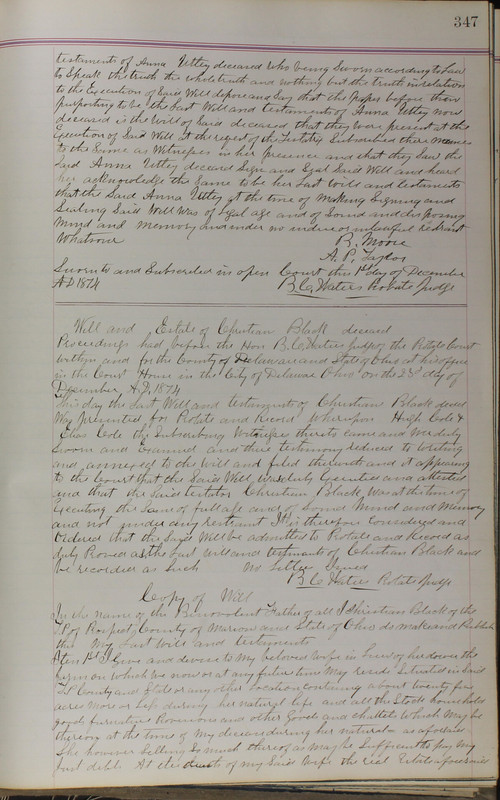 347
testament of Anna Utley deceased who being Sworn according to Law
to Speak the truth the whole truth and nothing but the truth in relation
to the Execution of Said Will depose and Say that the paper before them
purporting to be the Last Will and testament of Anna Utley now
deceased is the Will of Said deceased that they were present at the
Execution of Said Will at the request of the Testatrix Subscribed there names
to the Same as Witnesses in her presence and that they Saw the
Said Anna Utley deceased Sign and Seal Said Will and heard
her acknowledge the Same to be her Last Will and testament
that the Said Anna Utley at the time of Making Signing and
Sealing Said Will Was of Legal age and of Sound and disposing
Mind and Memory and under no undue or unlawful restraint
Whatever
R. Moore
A. P. Taylor
Sworn to and Subscribed in open Court this 1st day of December
A D 1874
B. C. Waters Probate Judge
Will and Estate of Christian Black deceased
Proceedings had before the Hon B. C. Waters Judge of the Probate Court
within and for the County of Delaware and State of Ohio at his office
in the Court House in the City of Delaware Ohio on the day of
December A.D. 1874
This day the Last Will and testament of Christian Black deced
Was presented for Probate and Record Whereupon Hugh Cole &
Cole the Subscribing Witnesses thereto came and Were duly
Sworn and Examined and there testimony reduced to Writing
and annexed to the Will and filed therewith and it appearing
to the Court that the Said Will was duly Executed and attested
and that the Said testator Christian Black, Was at the time of
Executing the Same of full age and of Sound Mind and Memory
and not under any restraint It is therefore Considered and
Ordered that the Said Will be admitted to Probate and Record as
duly Proved as the Last will and testament of Christian Black and
be recorded as Such No Letters Issued
B. C. Waters Probate Judge
Copy of Will
In the name of the Benevolent Father of all I Christian Black of the
T.P. of Prospect County of Marion and State of Ohio do make and Publish
this My Last Will and testament
Item 1st I Give and devise to My beloved Wife in Lieu of her dower the
farm on Which we now or at any future time May reside Situated in Said
T.P. County and State or any other Location containing about twenty five
acres More or Less during her natural life and all the Stock household
goods furniture Provisions and other Goods and chattels Which May be
thereon at the time of My decease during her natural as aforesaid
She however Selling So much thereof as may be Sufficient to pay my
Just debts At the death of my Said Wife the real Estate aforesaid